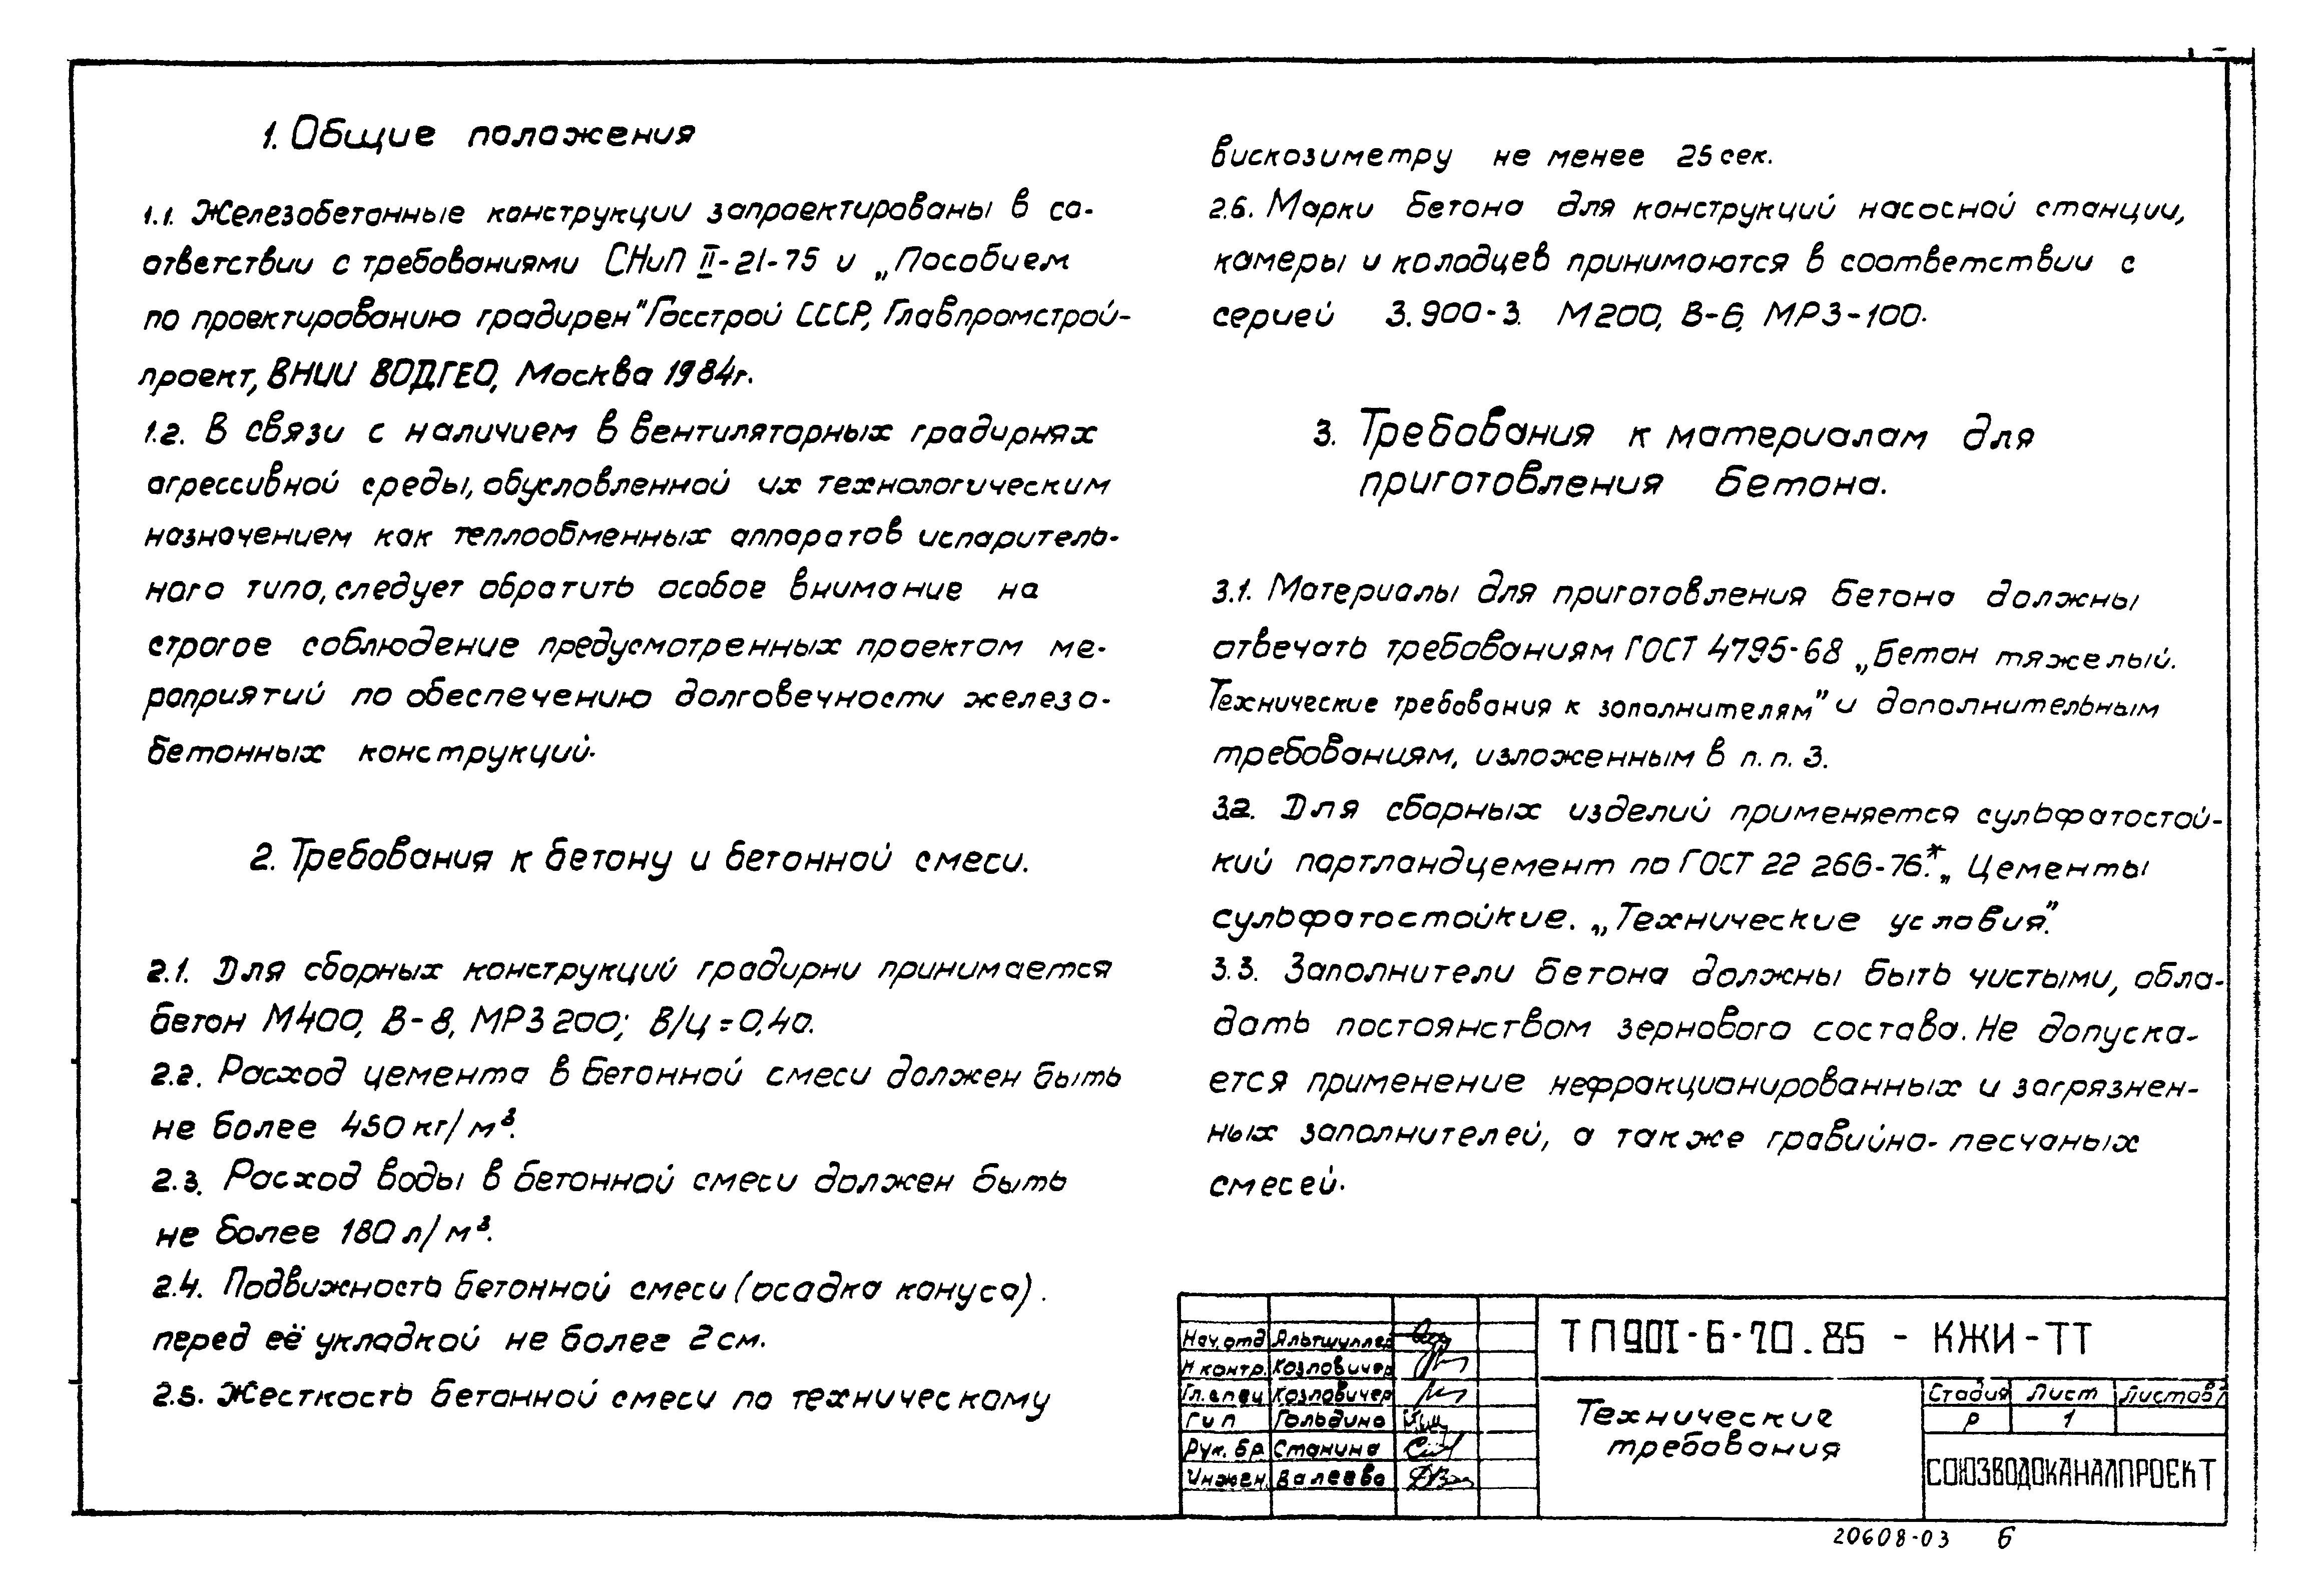 1. Общие положения
1.1. Железобетонные конструкции запроектированы в со-
ответствии с требованиями СНиП II-21-75 и „Пособием
по проектированию градирен" Госстрой СССР, Главпромстрой-
проект, ВНИИ ВОДГЕО, Москва 1984г.
1.2. В связи с наличием в вентиляторных градирнях
агрессивной среды, обусловленной их технологическим
назначением как теплообменных аппаратов испаритель-
ного типа, следует обратить особое внимание на
строгое соблюдение предусмотренных проектом ме-
роприятий по обеспечению долговечности железо-
бетонных конструкций.
2. Требования к бетону и бетонной смеси.
2.1. Для сборных конструкций градирни принимается
бетон М400, В-8, МРЗ 200; В/Ц=0,40.
2.2. Расход цемента в бетонной смеси должен быть
не более 450 кг/м³.
2.3. Расход воды в бетонной смеси должен быть
не более 180 л/м³.
2.4. Подвижность бетонной смеси (осадка конуса).
перед её укладкой не более 2 см.
2.5. Жесткость бетонной смеси по техническому
вискозиметру не менее 25 сек.
2.6. Марки бетона для конструкций насосной станции,
камеры и колодцев принимаются в соответствии с
серией 3.900-3. М200, В-6, МРЗ-100.
3. Требования к материалам для
приготовления бетона.
3.1. Материалы для приготовления бетона должны
отвечать требованиям ГОСТ 4795-68 „Бетон тяжелый.
Технические требования к заполнителям" и дополнительным
требованиям, изложенным в п.п. 3.
3.2. Для сборных изделий применяется сульфатостой-
кий портландцемент по ГОСТ 22 266-76.* „Цементы
сульфатостойкие. „Технические условия".
3.3. Заполнители бетона должны быть чистыми, обла-
дать постоянством зернового состава. Не допуска-
ется применение нефракционированных и загрязнен-
ных заполнителей, а также гравийно-песчаных
смесей.
Нач. отд Альтшуллер
Н контр. Козловичер
Гл. спец Козловичер
Гип Гольдина
Рук. бр Станина
Инжен. Валеева
ТП901-6-70.85 - КЖИ-ТТ
Технические
требования
Стадия Лист Листов
Р 1
СОЮЗВОДОКАНАЛПРОЕКТ
20608-03 6